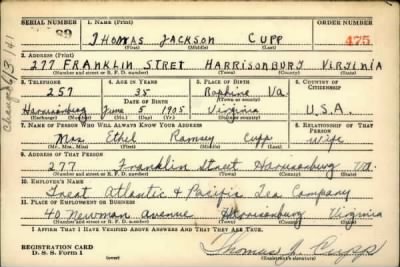 SERIAL NUMBER 1. NAME (Print) ORDER NUMBER
89 THOMAS JACKSON CUPP 475
(First) (Middle) (Last)
2. ADDRESS (Print)
277 FRANKLIN STRET HARRISONBURG VIRGINIA
(Number and street or R. F. D. number) (Town) (County) (State)
3. TELEPHONE 4. AGE IN YEARS 5. PLACE OF BIRTH 6. COUNTRY OF CITIZENSHIP
257 35 Raphine Va.
DATE OF BIRTH (Town or county)
Harrisonburg June 5 1905 Virginia U.S.A.
(Exchange) (Number) (Mo.) (Day) (Yr.) (State or country)
7. NAME OF PERSON WHO WILL ALWAYS KNOW YOUR ADDRESS 8. RELATIONSHIP OF THAT PERSON
Mrs. Ethel Ramsey Cupp Wife
(Mr., Mrs., Miss) (First) (Middle) (Last)
9. ADDRESS OF THAT PERSON
277 Franklin Street Harrisonburg Va.
(Number and street or R. F. D. number) (Town) (County) (State)
10. EMPLOYER'S NAME
Great Atlantic & Pacific Tea Company
11. PLACE OF EMPLOYMENT OR BUSINESS
40 Newman Avenue Harrisonburg Virginia
(Number and street or R. F. D. number) (Town) (County) (State)
I AFFIRM THAT I HAVE VERIFIED ABOVE ANSWERS AND THAT THEY ARE TRUE.
REGISTRATION CARD
D. S. S. Form 1 Thomas J. Cupp